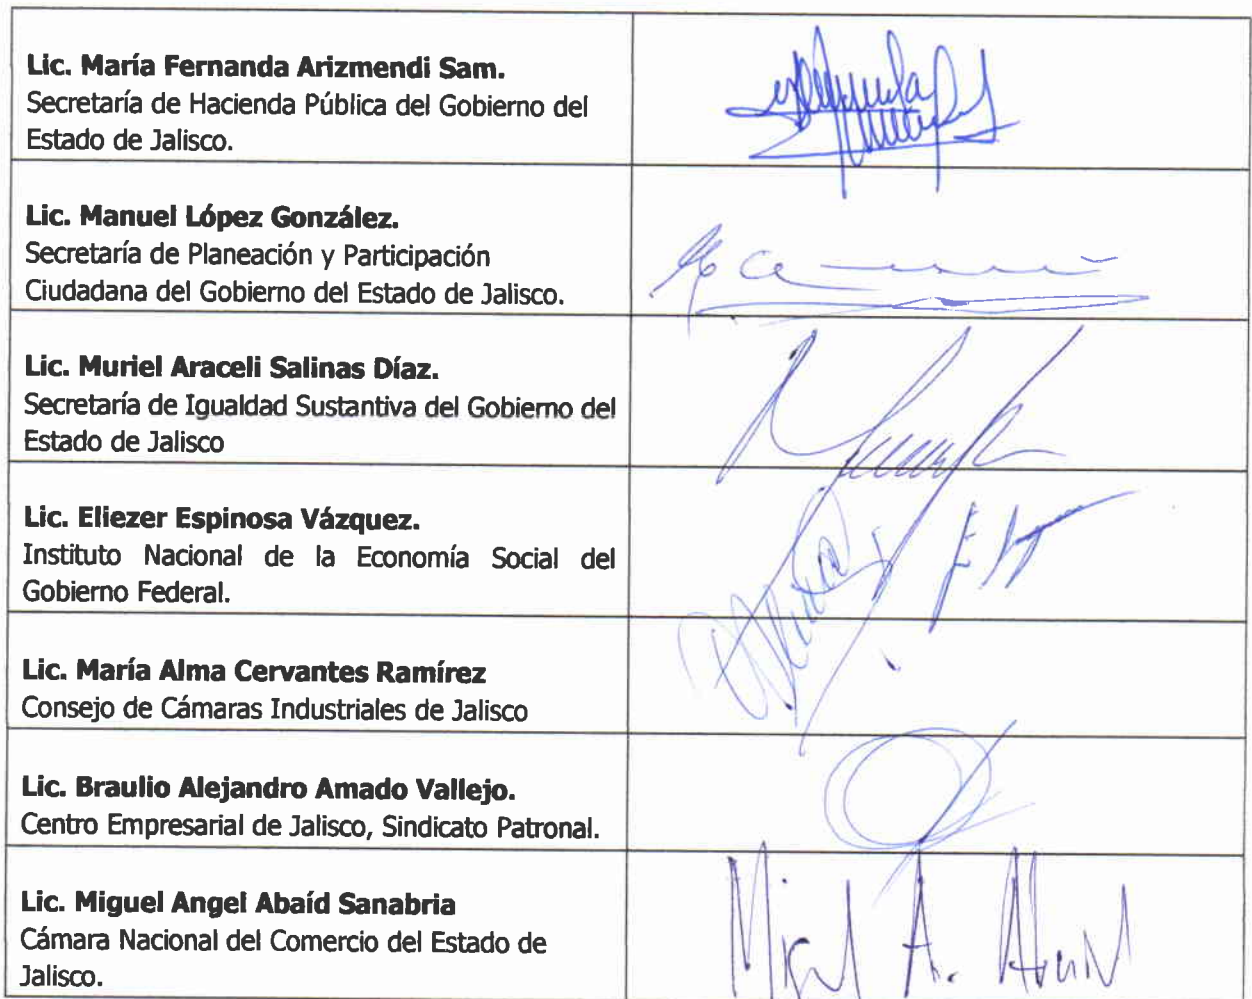 Lic. María Fernanda Arizmendi Sam.
Secretaría de Hacienda Pública del Gobierno del
Estado de Jalisco.
Lic. Manuel López González.
Secretaría de Planeación y Participación
Ciudadana del Gobierno del Estado de Jalisco.
Lic. Muriel Araceli Salinas Díaz.
Secretaría de Igualdad Sustantiva del Gobierno del
Estado de Jalisco
Lic. Eliezer Espinosa Vázquez.
Instituto Nacional de la Economía Social del
Gobierno Federal.
Lic. María Alma Cervantes Ramírez
Consejo de Cámaras Industriales de Jalisco
Lic. Braulio Alejandro Amado Vallejo.
Centro Empresarial de Jalisco, Sindicato Patronal.
Lic. Miguel Angel Abaíd Sanabria
Cámara Nacional del Comercio del Estado de
Jalisco.